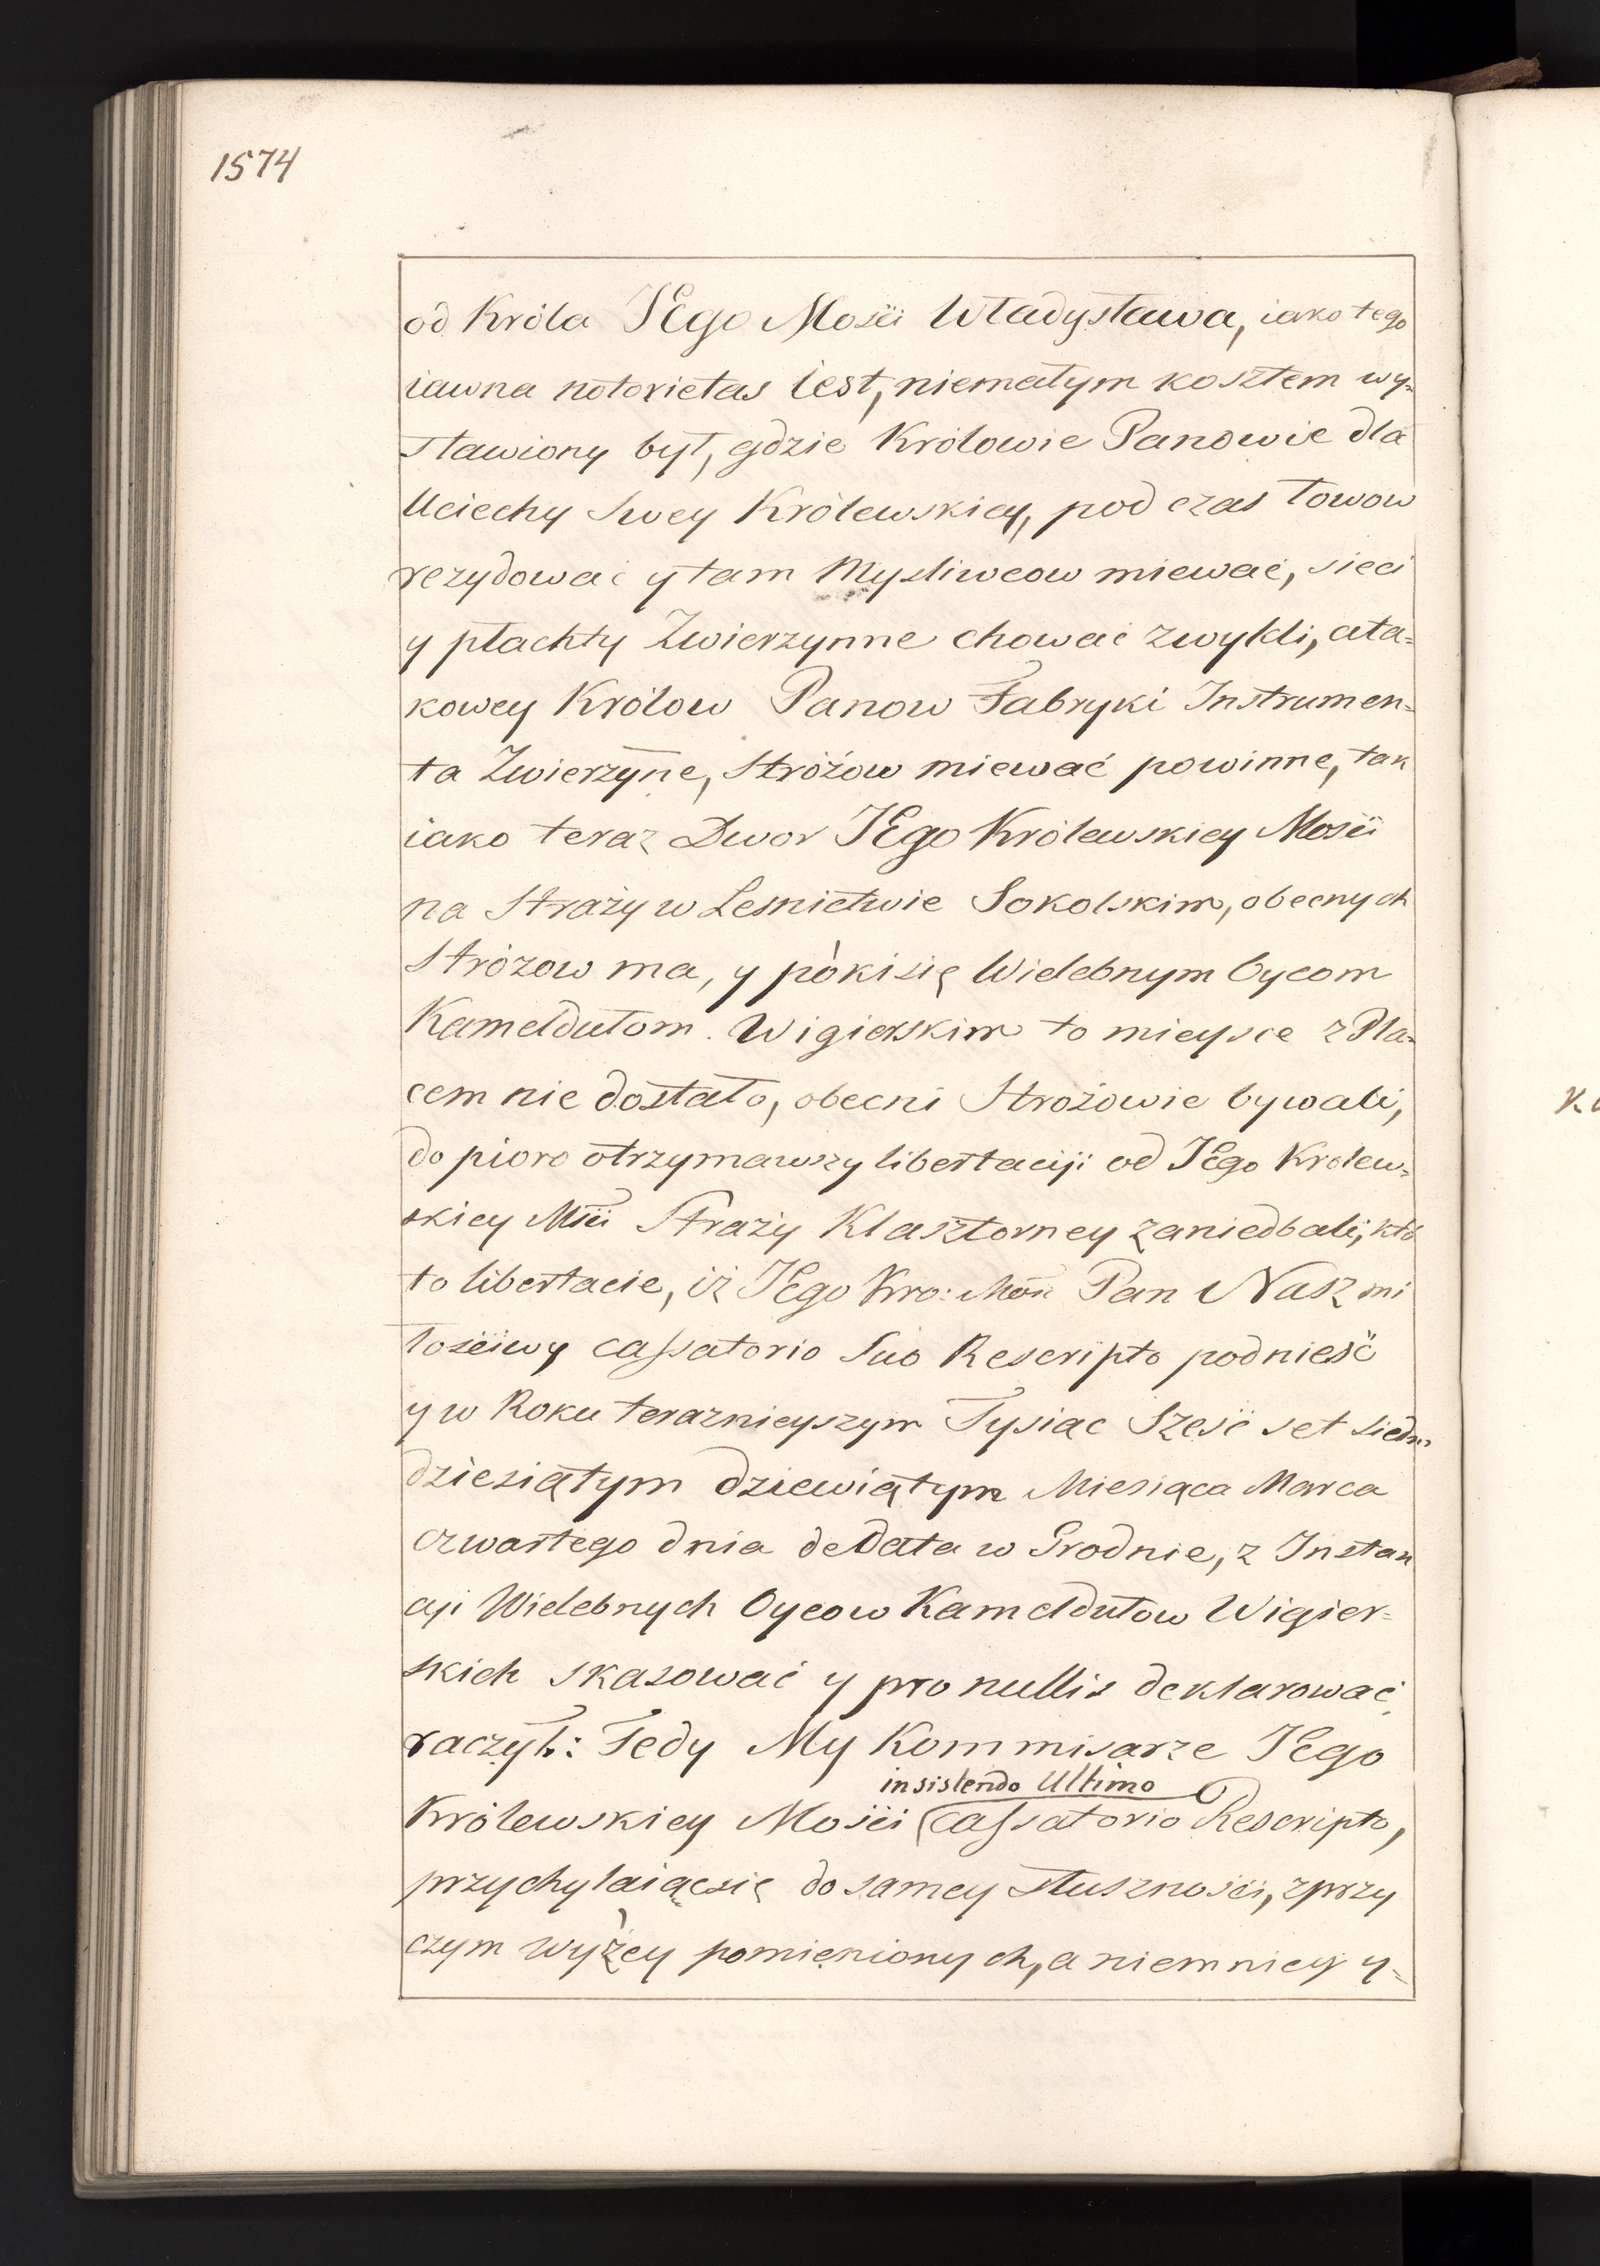 1574
od Króla JEgo Mości Władysława, iako tego
iawna notorietas iest, niemałym kosztem wy=
stawiony był, gdzie Królowie Panowie dla
Uciechy Swey Królewskiey, pod czas łowow
rezydować y tam Mysliwcow miewać, sieci
y płachty Zwierzynne chować zwykli, ata=
kowey Królow Panow Fabryki Instrumen=
ta Zwierzyne, Stróżow miewać powinne, tak
iako teraz Dwor JEgo Królewskiey Mości
na Straży w Lesnictwie Sokolskim, obecnych
Stróżow ma, y póki się Wielebnym Oycom
Kameldułom Wigierskim to mieysce z Pla=
cem nie dostało, obecni Strożowie bywali,
do pioro otrzymawszy libertacij od JEgo Krolew=
skiey Mści Straży Klasztorney zaniedbali, któ
to libertacie, iż JEgo Kro: Mości Pan Nasz mi
łościwy cassatorio Suo Rescripto podnieść
y w Roku teraznieyszym Tysiąc Sześć set siedm
dziesiątym dziewiątym Miesiąca Marca
czwartego dnia de Data w Grodnie, z Instan
cyi Wielebnych Oycow Kameldułow Wigier=
skich skasować y pro nullis deklarować
raczył: Tedy My Kommisarze JEgo
insistendo Ultimo
Królewskiey Mości cassatorio Rescripto,
przychylaiąc się do samey słuszności, z przy
czym wyżey pomienionych, a niemniey y=